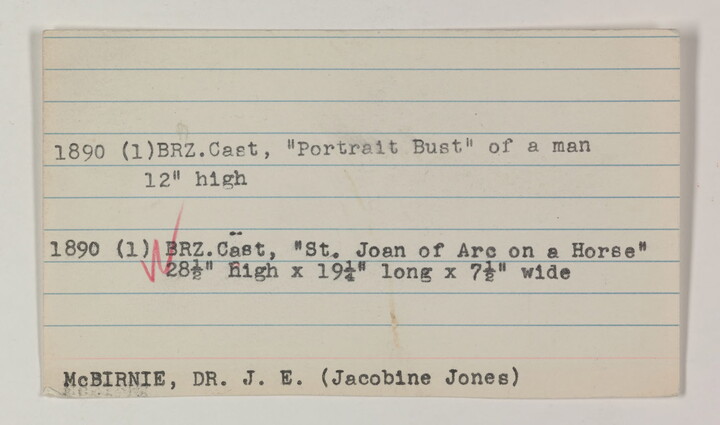 1890 (1)BRZ.Cast, "Portrait Bust" of a man
12" high
1890 (1) BRZ.Cast, "St. Joan of Arc on a Horse"
28½" high x 19¼" long x 7½" wide
McBIRNIE, DR. J. E. (Jacobine Jones)